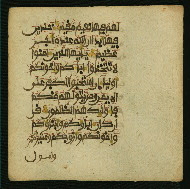 لهم فيها نعيم مقيم خلدين
فيها ابدا ان الله عنده اجر
عظيم يايها الذين امنوا
لا تتخذوا اباءكم واخونكم
اولياء ان استحبوا الكفر على
الايمن ومن يتولهم منكم
فاولئك هم الظلمون قل
ان كان اباؤكم وابناؤكم
واخونكم وازوجكم وعشيرتكم
واموال